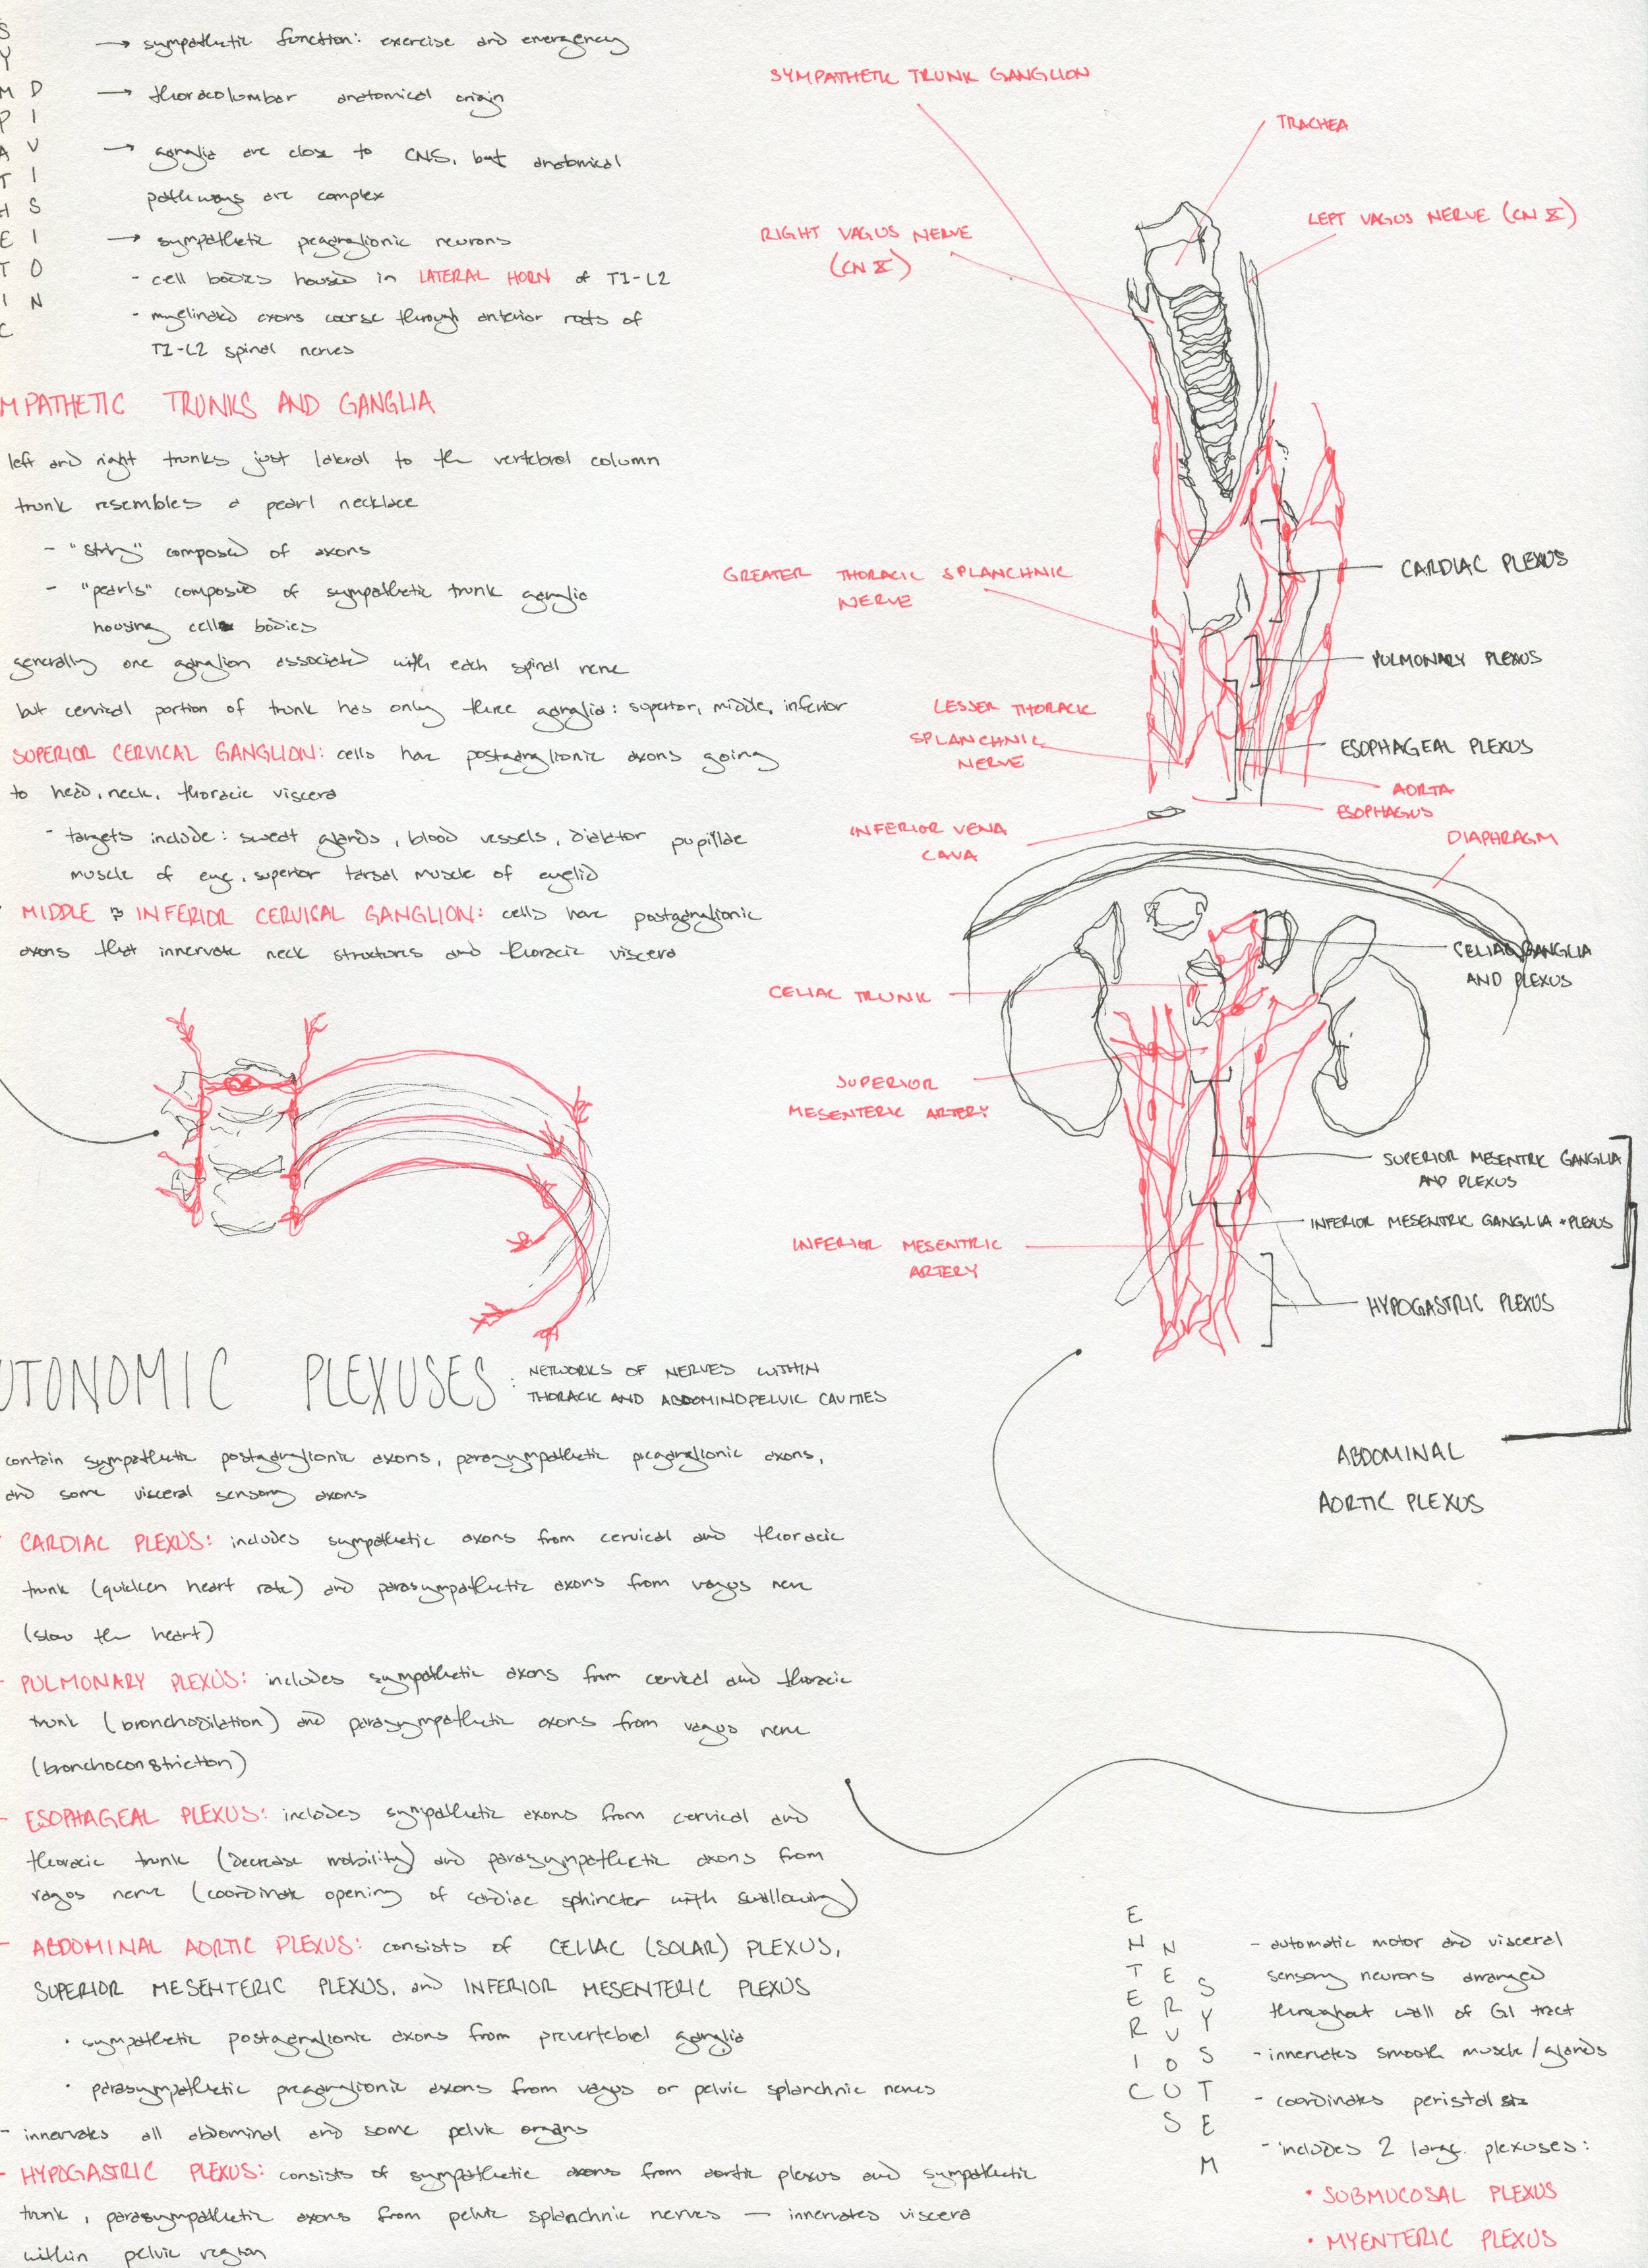 SYMPATHETIC
DIVISION
→ sympathetic function: exercise and emergency
→ thoracolumbar anatomical origin
→ ganglia are close to CNS, but anatomical
pathways are complex
→ sympathetic preganglionic neurons
- cell bodies housed in LATERAL HORN of T1-L2
- myelinated axons course through anterior roots of
T1-L2 spinal nerves
MPATHETIC TRUNKS AND GANGLIA
left and right trunks just lateral to the vertebral column
trunk resembles a pearl necklace
- "string" composed of axons
- "pearls" composed of sympathetic trunk ganglia
housing cell bodies
generally one ganglion associated with each spinal nerve
but cervical portion of trunk has only three ganglia: superior, middle, inferior
SUPERIOR CERVICAL GANGLION: cells have postganglionic axons going
to head, neck, thoracic viscera
- targets include: sweat glands, blood vessels, dialator pupillae
muscle of eye, superior tarsal muscle of eyelid
MIDDLE & INFERIOR CERVICAL GANGLION: cells have postganglionic
axons that innervate neck structures and thoracic viscera
SYMPATHETIC TRUNK GANGLION
TRACHEA
RIGHT VAGUS NERVE
(CN X)
LEFT VAGUS NERVE (CN X)
GREATER THORACIC SPLANCHNIC
NERVE
CARDIAC PLEXUS
PULMONARY PLEXUS
LESSER THORACIC
SPLANCHNIC
NERVE
ESOPHAGEAL PLEXUS
AORTA
ESOPHAGUS
INFERIOR VENA
CAVA
DIAPHRAGM
CELIAC GANGLIA
AND PLEXUS
CELIAC TRUNK
SUPERIOR
MESENTERIC ARTERY
SUPERIOR MESENTRIC GANGLIA
AND PLEXUS
INFERIOR MESENTRIC GANGLIA + PLEXUS
INFERIOR MESENTRIC
ARTERY
HYPOGASTRIC PLEXUS
ABDOMINAL
AORTIC PLEXUS
UTONOMIC PLEXUSES: NETWORKS OF NERVES WITHIN
THORACIC AND ABDOMINOPELVIC CAVITIES
contain sympathetic postganglionic axons, parasympathetic preganglionic axons,
and some visceral sensory axons
- CARDIAC PLEXUS: includes sympathetic axons from cervical and thoracic
trunk (quicken heart rate) and parasympathetic axons from vagus nerve
(slow the heart)
- PULMONARY PLEXUS: includes sympathetic axons from cervical and thoracic
trunk (bronchodilation) and parasympathetic axons from vagus nerve
(bronchoconstriction)
- ESOPHAGEAL PLEXUS: includes sympathetic axons from cervical and
thoracic trunk (decrease mobility) and parasympathetic axons from
vagus nerve (coordinate opening of cardiac sphincter with swallowing)
- ABDOMINAL AORTIC PLEXUS: consists of CELIAC (SOLAR) PLEXUS,
SUPERIOR MESENTERIC PLEXUS, and INFERIOR MESENTERIC PLEXUS
• sympathetic postganglionic axons from prevertebral ganglia
• parasympathetic preganglionic axons from vagus or pelvic splanchnic nerves
- innervates all abdominal and some pelvic organs
- HYPOGASTRIC PLEXUS: consists of sympathetic axons from aortic plexus and sympathetic
trunk, parasympathetic axons from pelvic splanchnic nerves — innervates viscera
within pelvic region
ENTERIC
NERVOUS
SYSTEM
- automatic motor and visceral
sensory neurons arranged
throughout wall of GI tract
- innervates smooth muscle/glands
- coordinates peristalsis
- includes 2 large plexuses:
• SUBMUCOSAL PLEXUS
• MYENTERIC PLEXUS